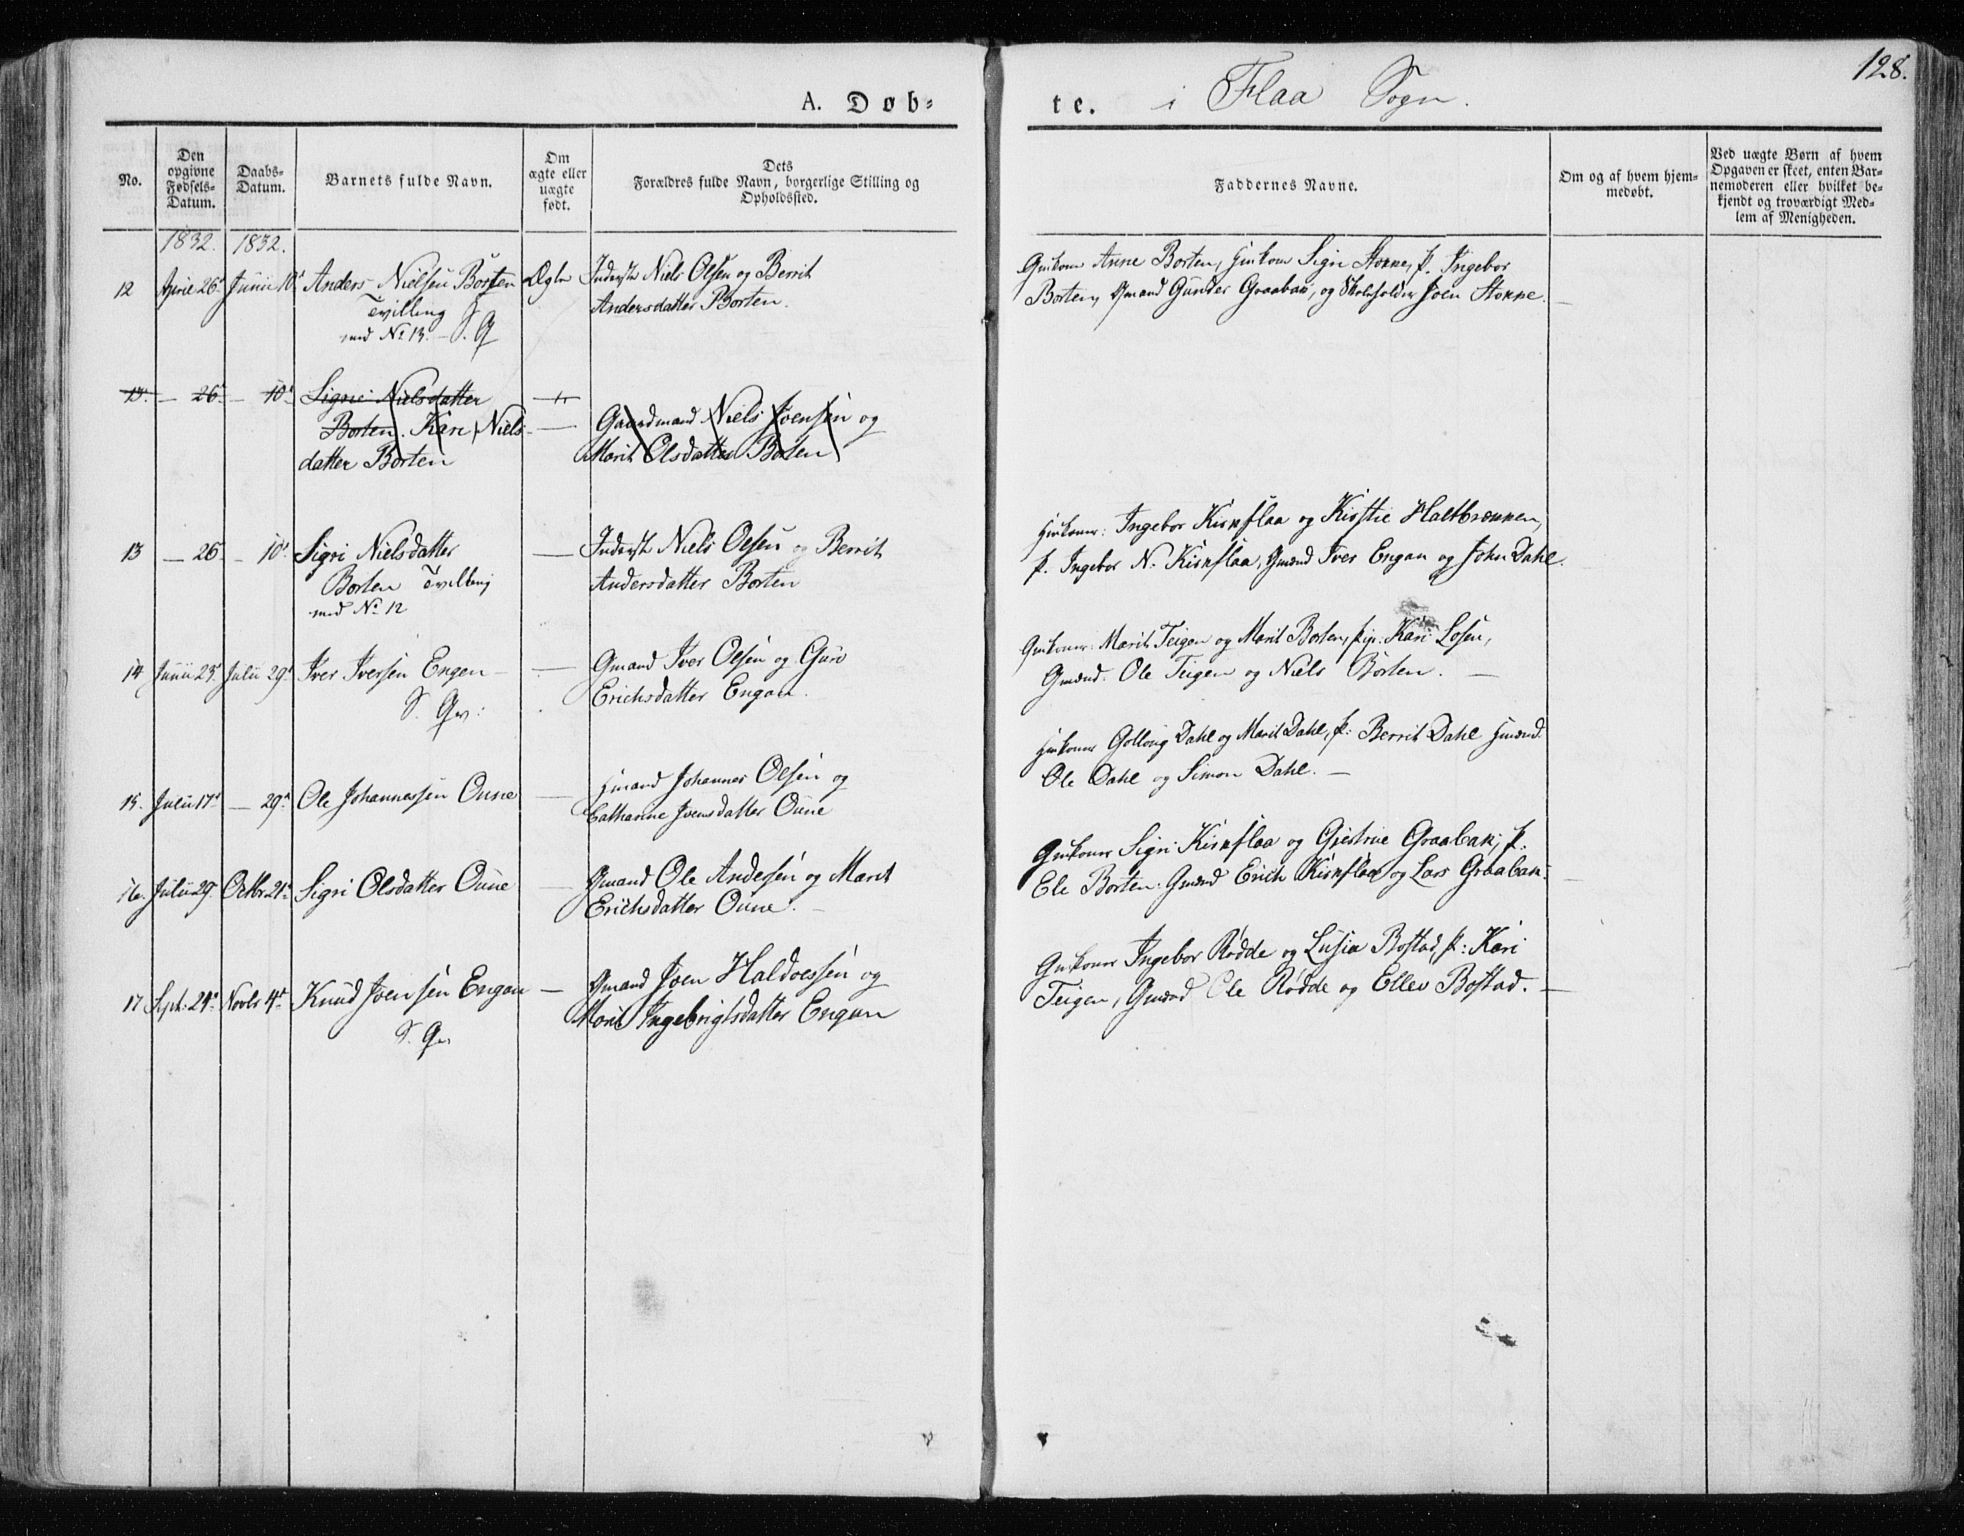 128.
A. Døb-
te. i Flaa Sogn.
No.
Den opgivne Fødsels-Datum.
Daabs-Datum.
Barnets fulde Navn.
Om ægte eller uægte født.
Dets Forældres fulde Navn, borgerlige Stilling og Opholdssted.
Faddernes Navne.
Om og af hvem hjem-
medøbt.
Ved uægte Børn af hvem
Opgaven er skeet, enten Bar-
nemoderen eller hvilket be-
kjendt og troværdigt Med-
lem af Menigheden.
1832. 1832.
12 26 Junii 10 Anders Nielsen Borten Ægte Inderst Niels Olsen og Berrit
Tvilling
med No 13.
Andersdatter Borten.
Anne Borten, Sigri Stokke, p. Ingebor
Borten, Gmand Gunder Graabak, og Skoleholder Joen Stokke.
13. — 26 — 10 Signe Nielsdatter
Borten. Kari Niels
datter Borten
Gaardmand Niels Joensen og
Marit Olsdatter Borten
13 — 26 — 10 Sigri Nielsdatter — Inderst Niels Olsen og Berrit
Borten Tvilling
med No 12
Andersdatter Borten
Ingebor Kirkflaa og Kirstie Haltbrekken,
p. Ingebor N. Kirkflaa, Gmænd Iver Engan og John Dahl.
14 Junii 23 Julii 29 Iver Iversen Engen — Gmand Iver Olsen og Guri
Erichsdatter Engan.
Marit Teigen og Marit Borten, Kari Losen,
Gmænd. Ole Teigen og Niels Borten. —
15. Julii 17 — 29 Ole Johannesen Oune — Johannes Olsen og
Cathrine Joensdatter Oune
Gollaug Dahl og Marit Dahl, p: Berrit Dahl
Ole Dahl og Simon Dahl. —
16. Julii 29 Octbr 21 Sigri Olsdatter Oune — Gmand Ole Andersen og Marit
Erichsdatter Oune. —
Sigri Kirkflaa og Gjertrue Graabak, p.
Ele Borten. Gmænd Erich Kirkflaa og Lars Graabak.
17 Sept: 24 Novbr 4 Knud Joensen Engan — Gmand Joen Haldorssen og
Marit Ingebrigtsdatter Engan
Ingebor Rødde og Lusia Bostad, p: Kari
Teigen, Gmænd Ole Rødde og Ellev Bostad. —